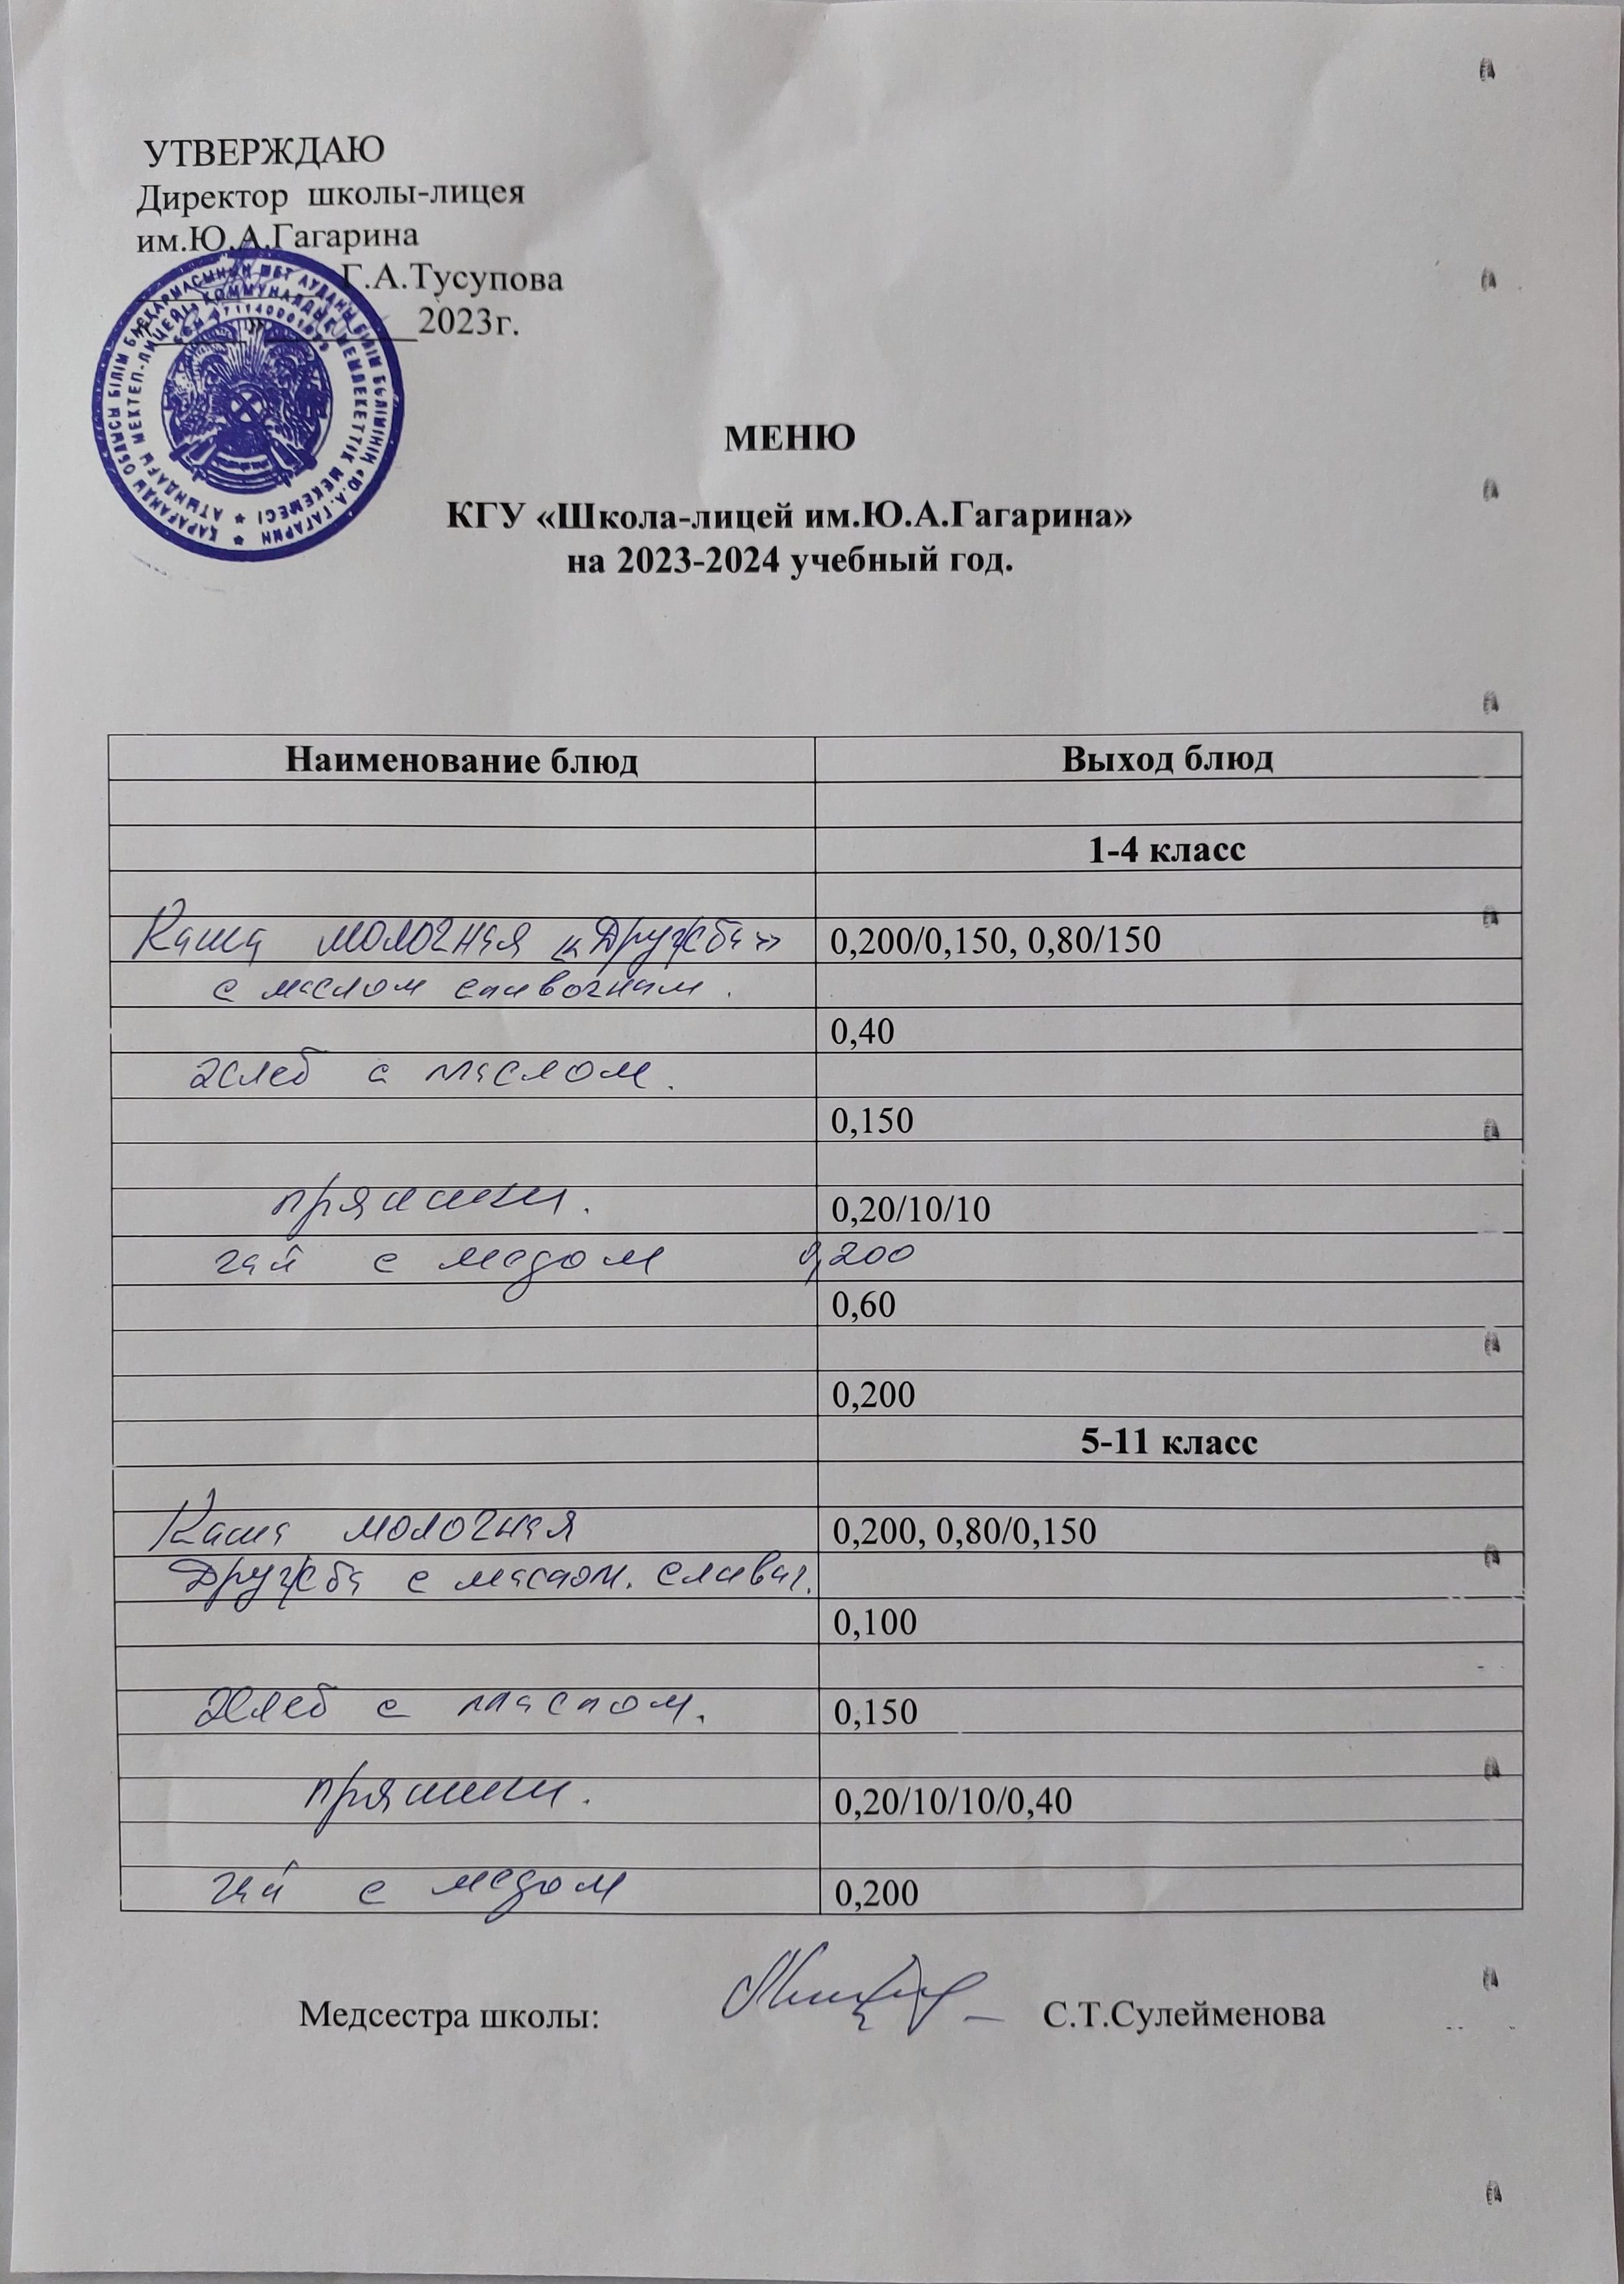 УТВЕРЖДАЮ
Директор школы-лицея
им.Ю.А.Гагарина
Г.А.Тусупова
2023г.
ҚАРАҒАНДЫ ОБЛЫСЫ БІЛІМ БАСҚАРМАСЫНЫҢ ШЕТ АУДАНЫ БІЛІМ БӨЛІМІНІҢ «Ю.А.ГАГАРИН
АТЫНДАҒЫ МЕКТЕП-ЛИЦЕЙІ» КОММУНАЛДЫҚ МЕМЛЕКЕТТІК МЕКЕМЕСІ
МЕНЮ
КГУ «Школа-лицей им.Ю.А.Гагарина»
на 2023-2024 учебный год.
Наименование блюд Выход блюд
1-4 класс
Каша молочная «Дружба» 0,200/0,150, 0,80/150
с маслом сливочным.
0,40
хлеб с маслом.
0,150
пряники. 0,20/10/10
чай с медом 0,200
0,60
0,200
5-11 класс
Каша молочная 0,200, 0,80/0,150
Дружба с маслом. сливоч.
0,100
Хлеб с маслом. 0,150
пряники. 0,20/10/10/0,40
чай с медом 0,200
Медсестра школы: С.Т.Сулейменова